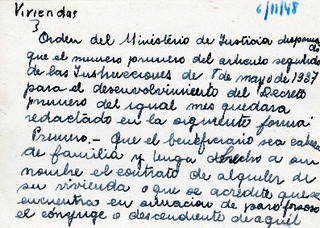 Viviendas
6/11/48
Orden del Ministerio de Justicia disponiendo
que el numero primero del articulo segundo
de las Instrucciones de 8 de mayo de 1937
para el desenvolvimiento del Decreto
primero del igual mes quedara
redactado en la siguiente forma:
Primero.- Que el beneficiario sea cabeza
de familia y tenga derecho a su
nombre el contrato de alquiler de
su vivienda o que se acredite que se
encuentra en situacion de paro forzoso
el conyuge o descendiente de aquél